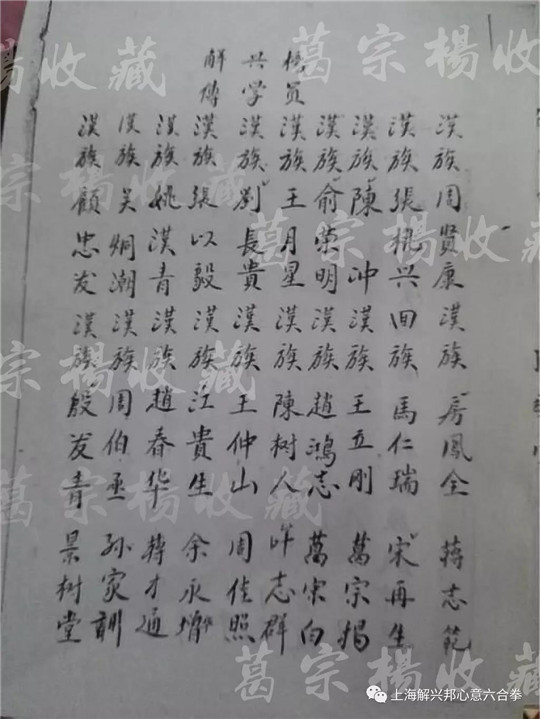 解兴邦
傳学员
漢族周賢康漢族房鳳全蒋志範
漢族張桃兴回族馬仁瑞宋再生
漢族陳冲漢族王立刚葛宗揚
漢族俞荣明漢族趙鴻志萬宋白
漢族王月星漢族陳树人許志群
漢族劉長貴漢族王仲山周佳照
漢族張以毅漢族江貴生余永增
漢族姚漢青漢族趙春华蒋才通
漢族吴炯潮漢族周伯丞孙家訓
漢族顧忠发漢族殷发青景树堂
葛宗楊收藏
葛宗楊收藏
葛宗楊收藏
葛宗楊收藏
葛宗楊收藏
上海解兴邦心意六合拳